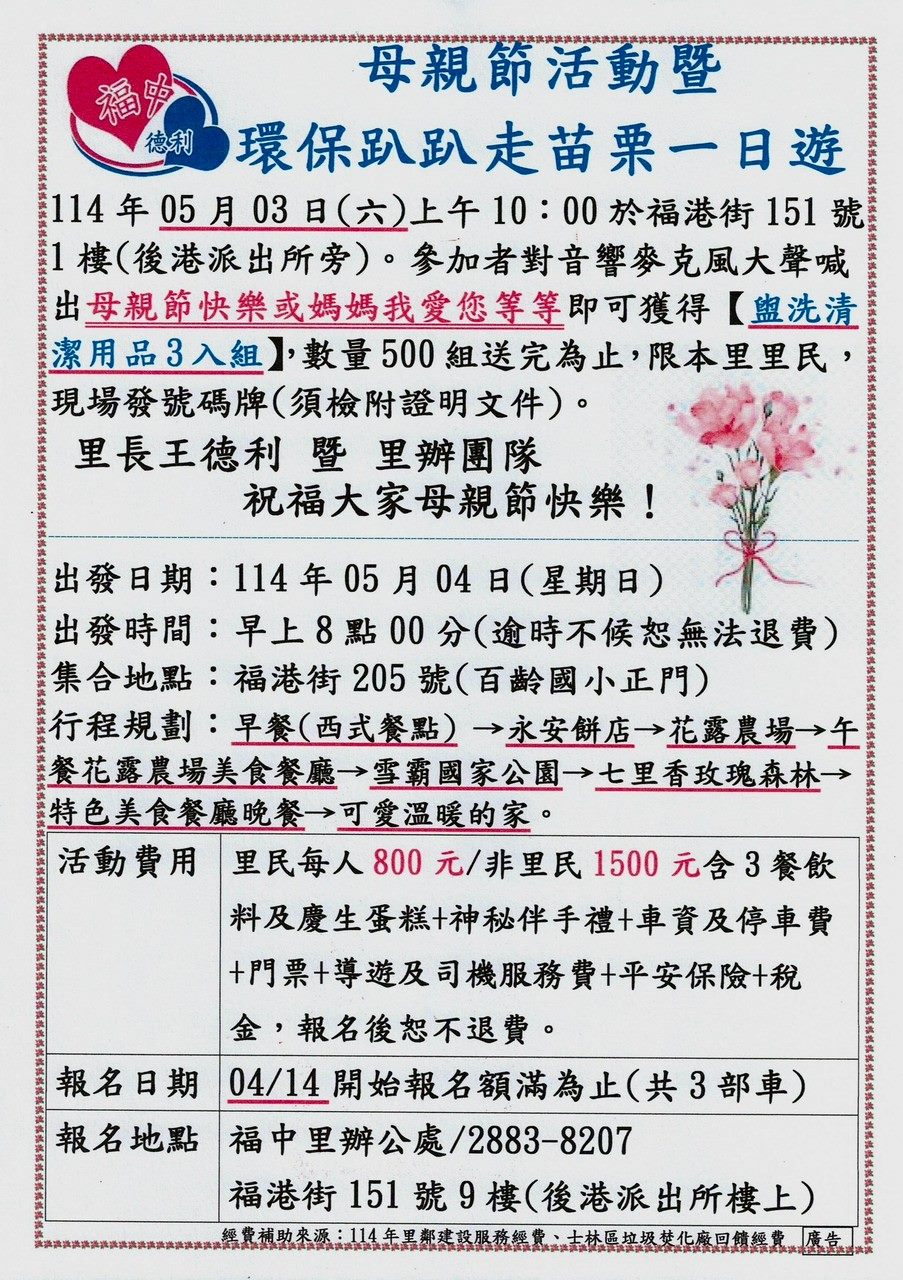 母親節活動暨
福中
德利
環保趴趴走苗栗一日遊
114年05月03日(六)上午10：00於福港街151號
1樓(後港派出所旁)。參加者對音響麥克風大聲喊
出母親節快樂或媽媽我愛您等等即可獲得【盥洗清
潔用品3入組】，數量500組送完為止，限本里里民，
現場發號碼牌(須檢附證明文件)。
里長王德利 暨 里辦團隊
祝福大家母親節快樂！
出發日期：114年05月04日(星期日)
出發時間：早上8點00分(逾時不候恕無法退費)
集合地點：福港街205號(百齡國小正門)
行程規劃：早餐(西式餐點)→永安餅店→花露農場→午
餐花露農場美食餐廳→雪霸國家公園→七里香玫瑰森林→
特色美食餐廳晚餐→可愛溫暖的家。
活動費用 里民每人800元/非里民1500元含3餐飲
料及慶生蛋糕+神秘伴手禮+車資及停車費
+門票+導遊及司機服務費+平安保險+稅
金，報名後恕不退費。
報名日期 04/14開始報名額滿為止(共3部車)
報名地點 福中里辦公處/2883-8207
福港街151號9樓(後港派出所樓上)
經費補助來源：114年里鄰建設服務經費、士林區垃圾焚化廠回饋經費 廣告